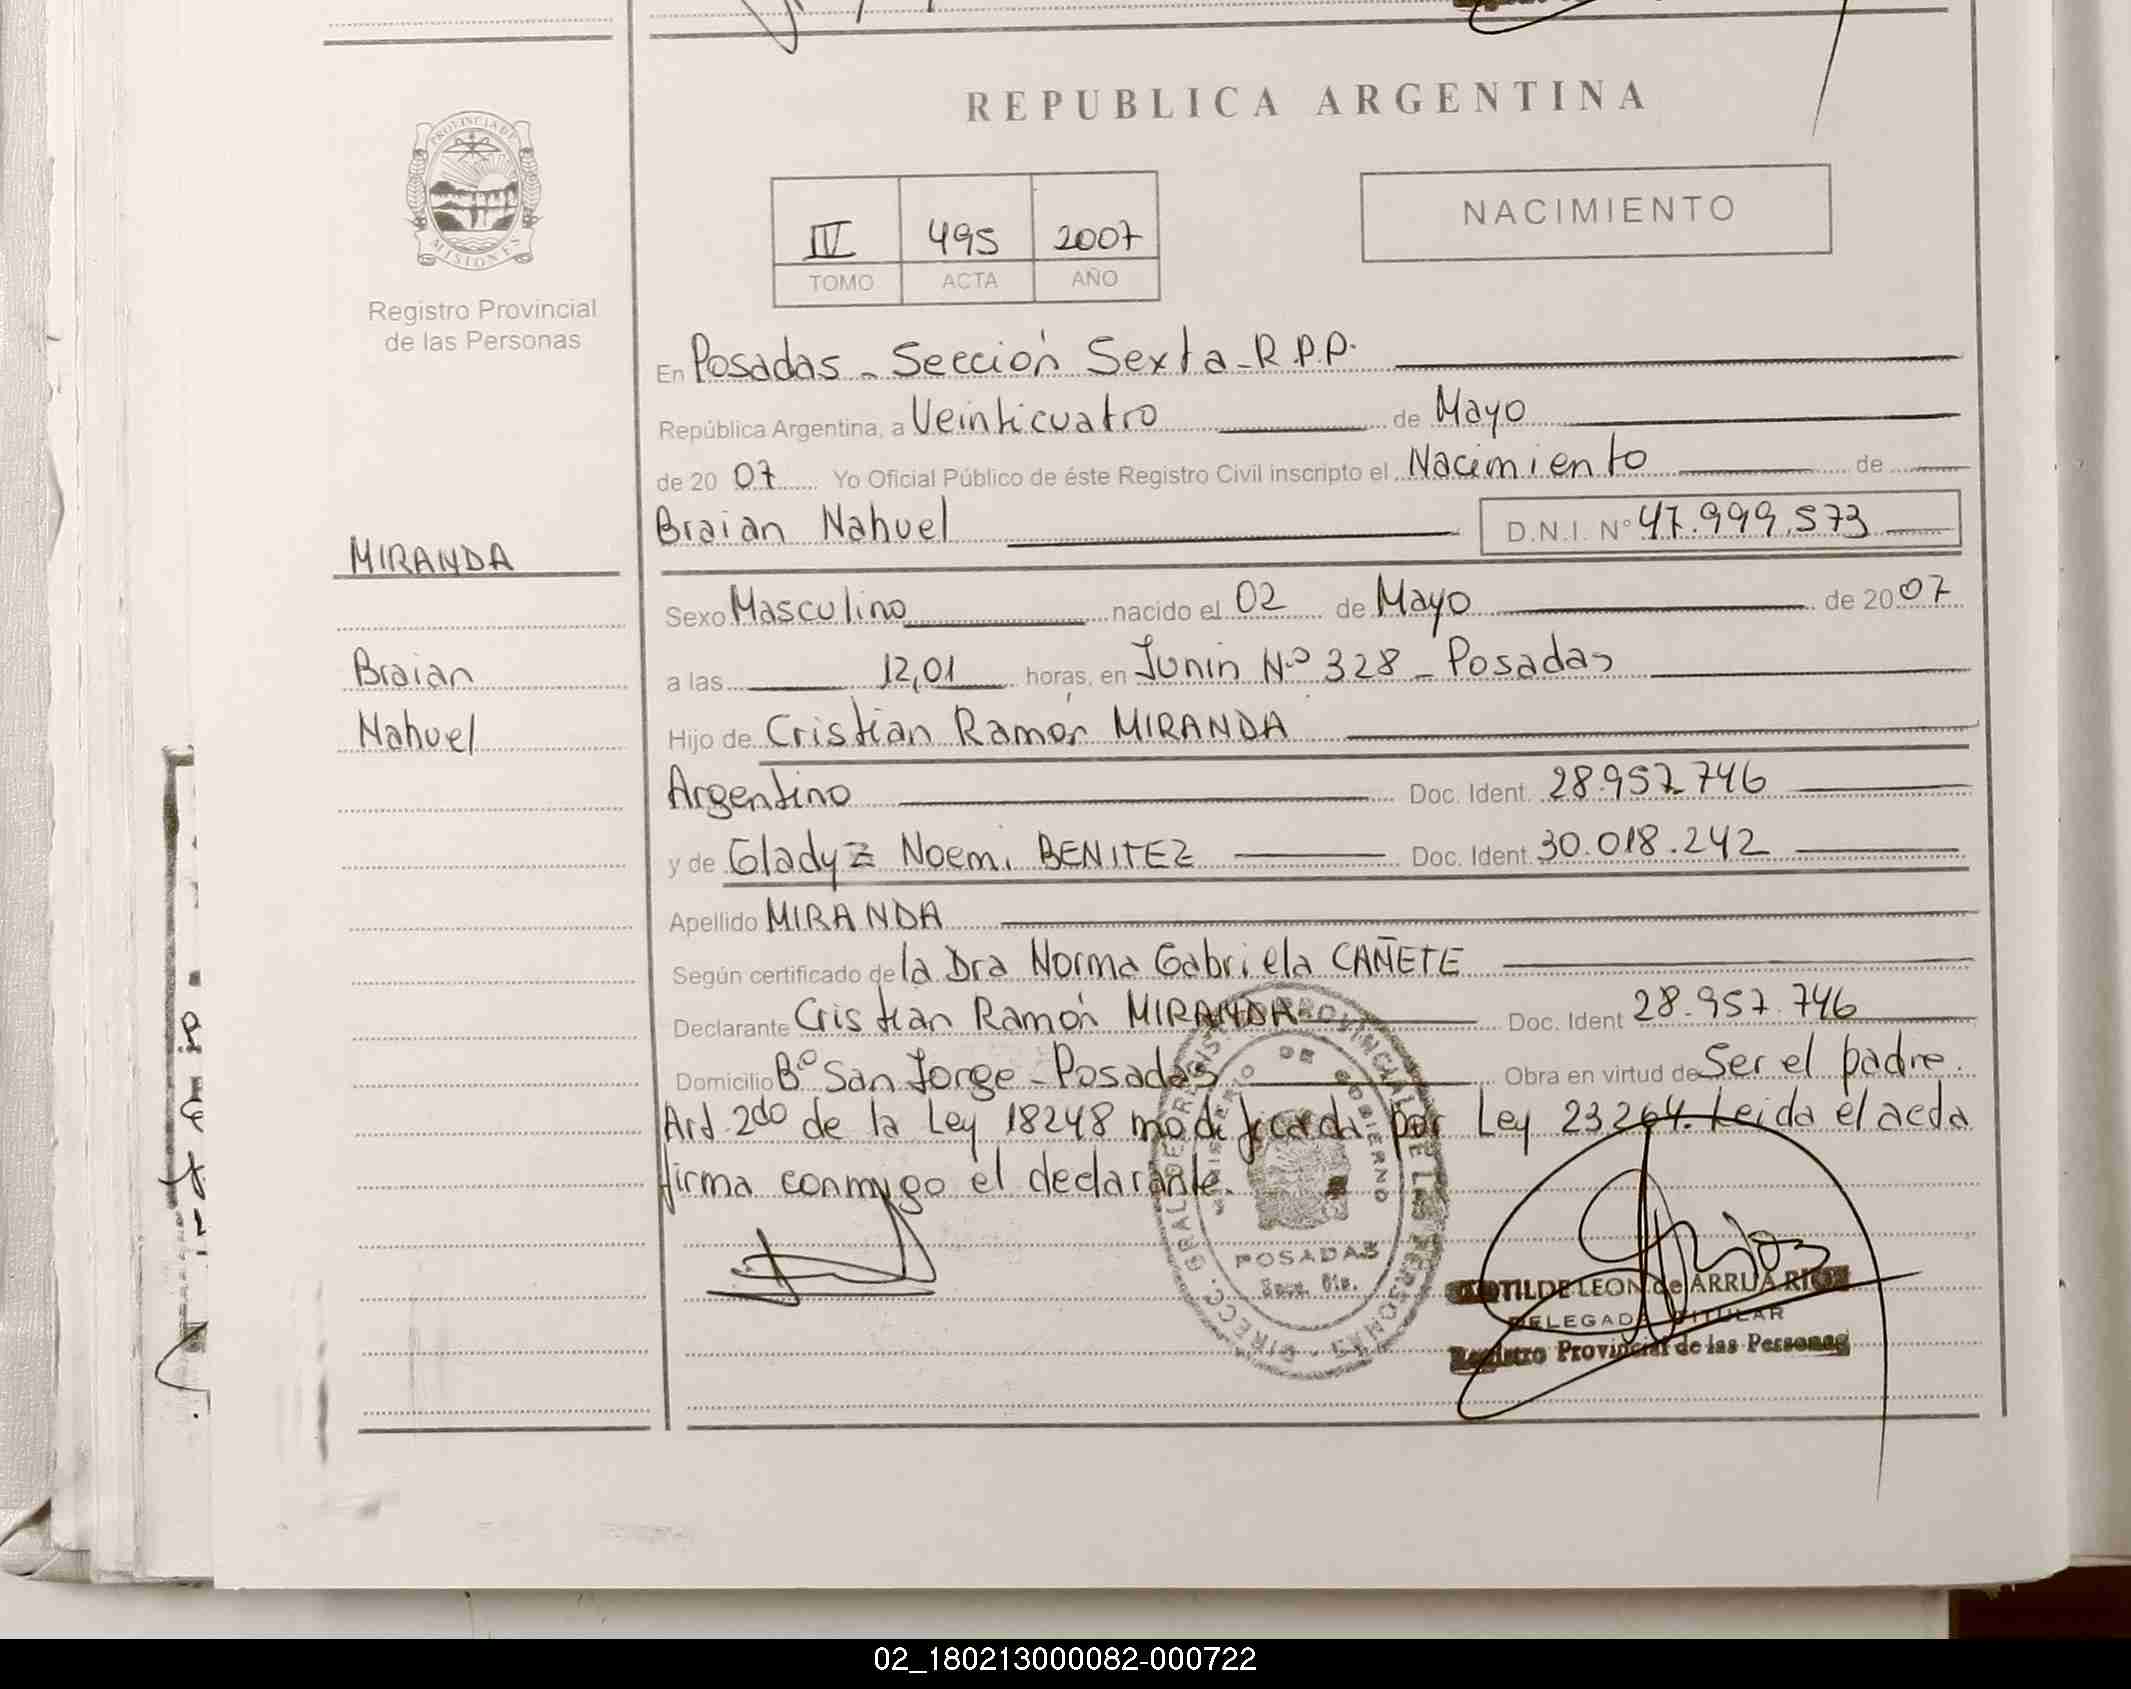 REPUBLICA ARGENTINA
PROVINCIA DE
MISIONES
Registro Provincial
de las Personas
NACIMIENTO
IV 495 2007
TOMO ACTA AÑO
En Posadas - Sección Sexta - R.P.P.
República Argentina, a Veinticuatro de Mayo
de 2007 Yo Oficial Público de éste Registro Civil inscripto el Nacimiento de
Braian Nahuel D.N.I. Nº 47.999.573
MIRANDA
Braian
Nahuel
Sexo Masculino nacido el 02 de Mayo de 2007
a las 12,01 horas, en Junin Nº 328 - Posadas
Hijo de Cristian Ramón MIRANDA
Argentino Doc. Ident. 28.957.746
y de Gladyz Noemi BENITEZ Doc. Ident. 30.018.242
Apellido MIRANDA
Según certificado de la Dra Norma Gabriela CAÑETE
Declarante Cristian Ramón MIRANDA Doc. Ident 28.957.746
Domicilio Bº San Jorge - Posadas Obra en virtud de Ser el padre.
Art 2do de la Ley 18248 modificada por Ley 23264. Leida el acta
firma conmigo el declarante.
DIRECC. GRAL DE REGISTRO PROVINCIAL DE LAS PERSONAS
MINISTERIO DE GOBIERNO
POSADAS
CLOTILDE LEON de ARRUA RIOS
DELEGADA TITULAR
Registro Provincial de las Personas
02_180213000082-000722